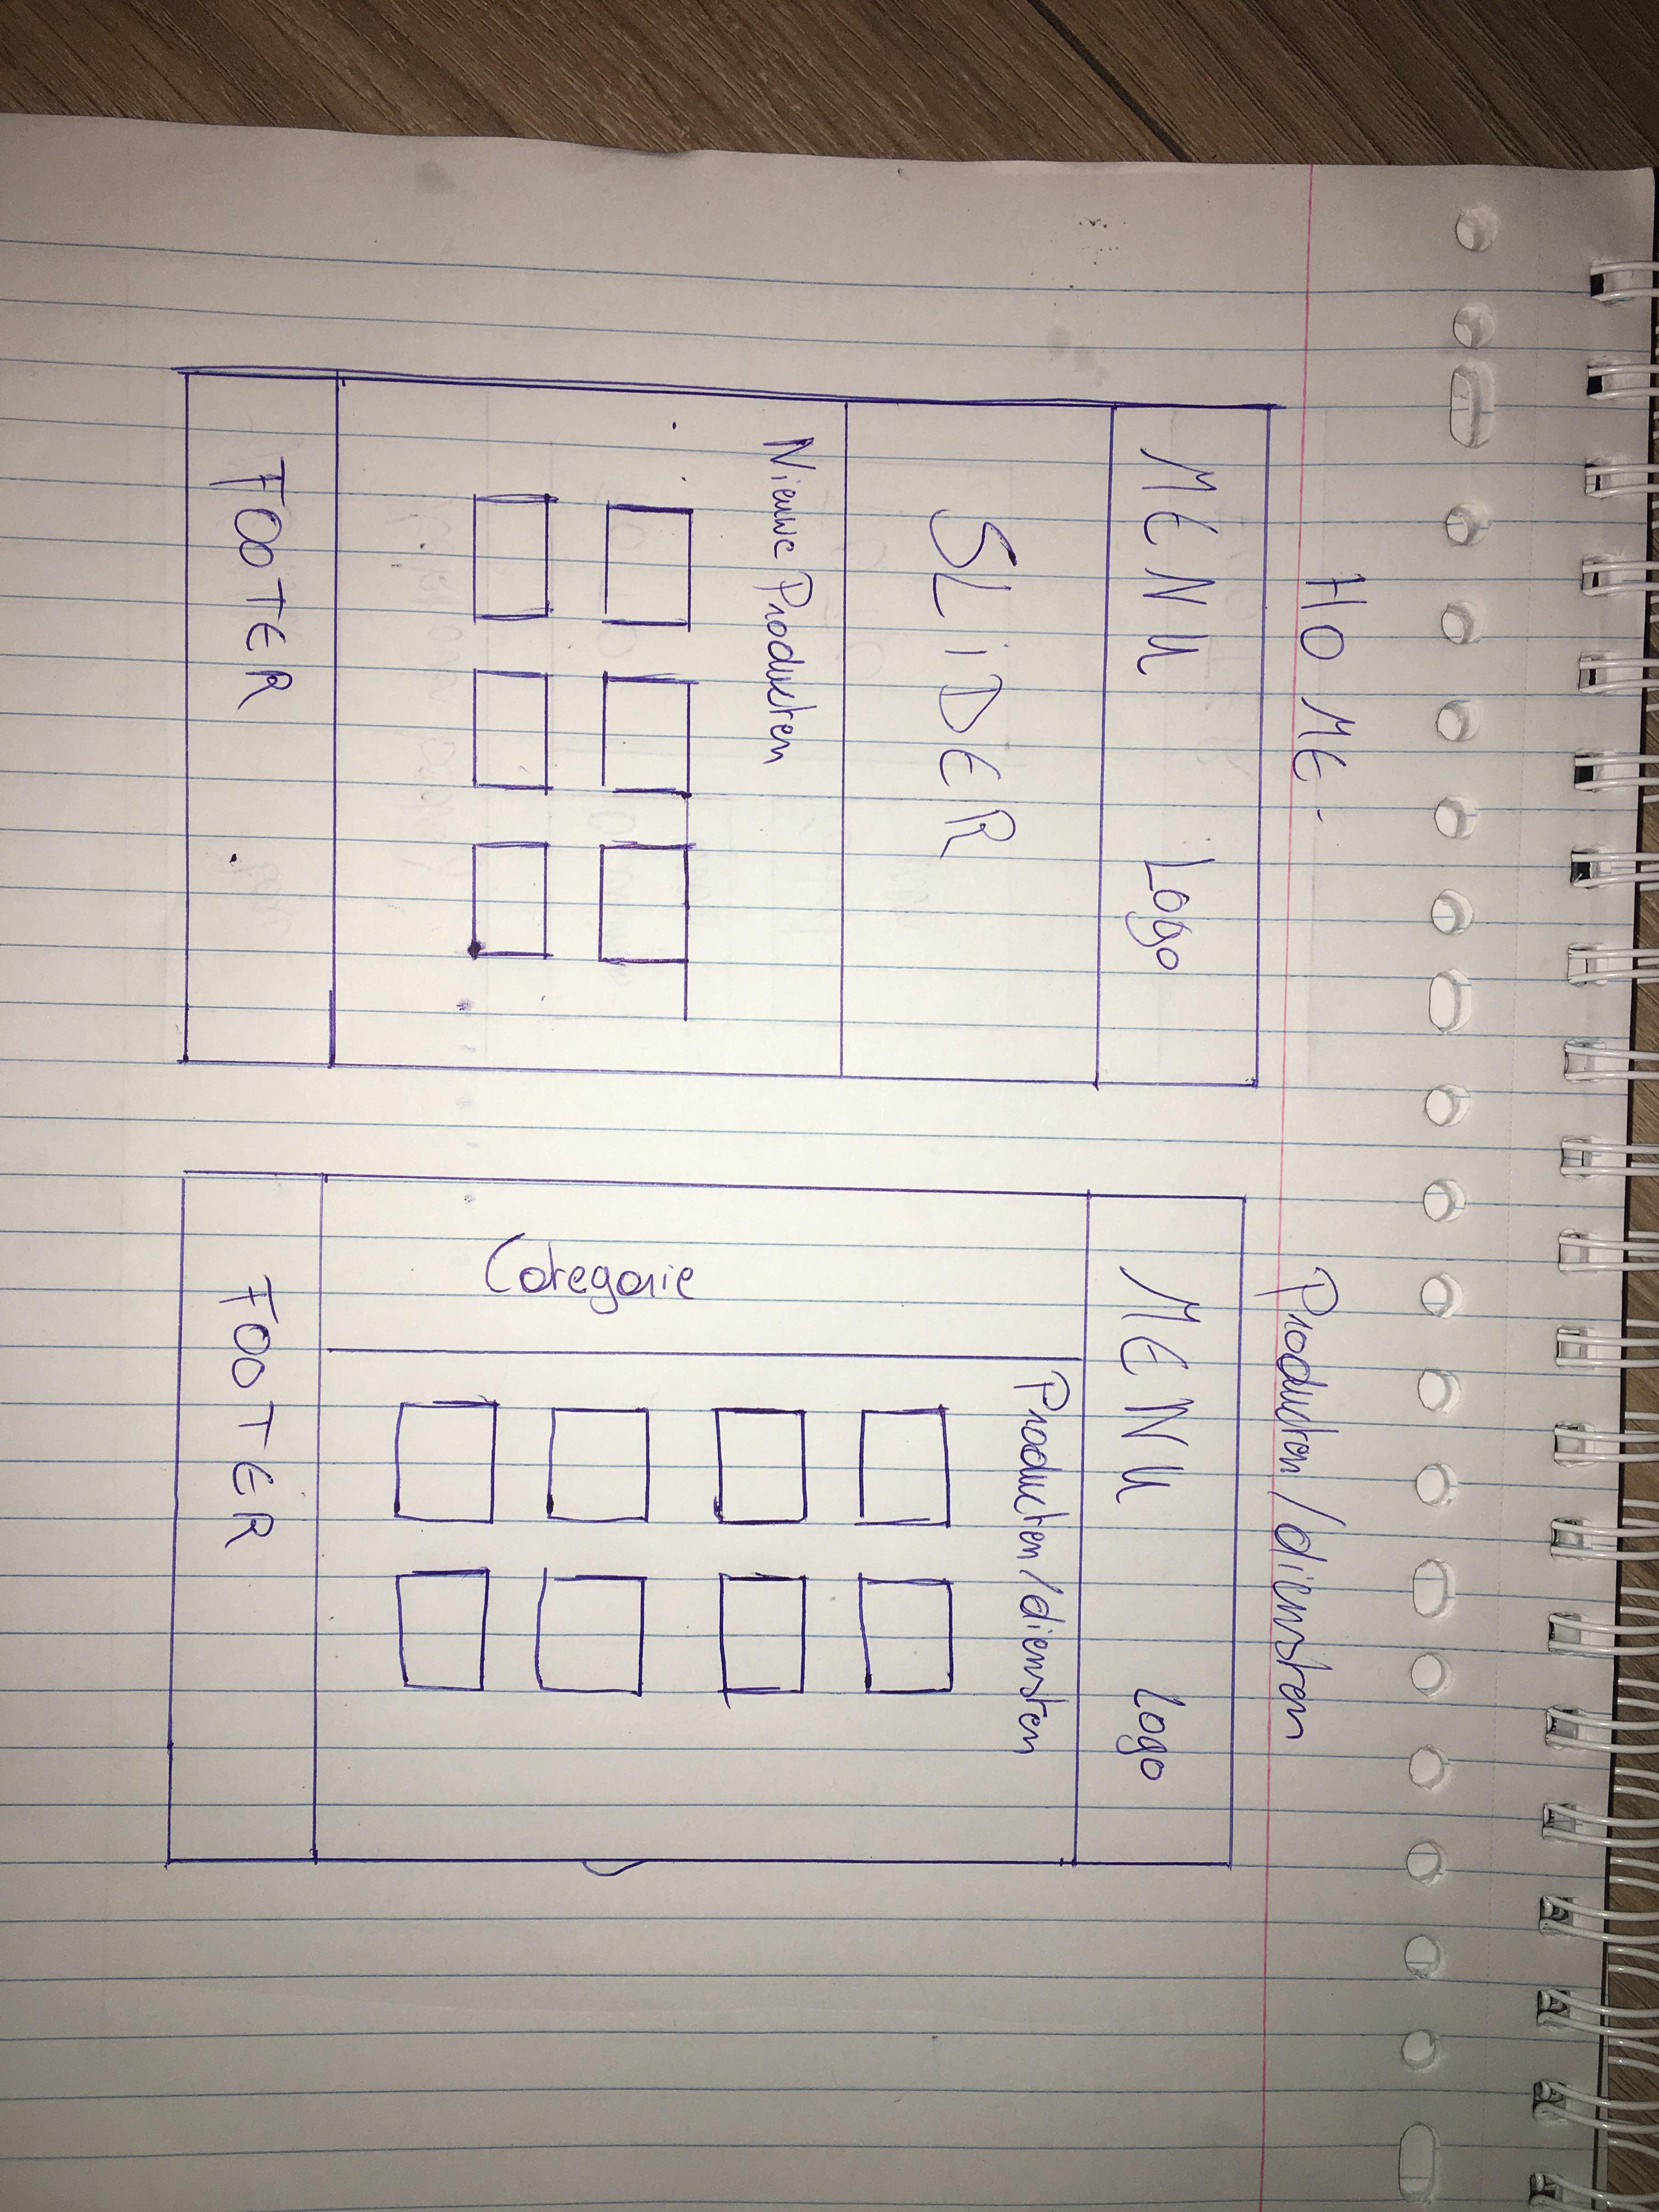 HOME.
MENU Logo
SLIDER
Nieuwe Producten
FOOTER
Producten/diensten
MENU Logo
Categorie
Producten/diensten
FOOTER